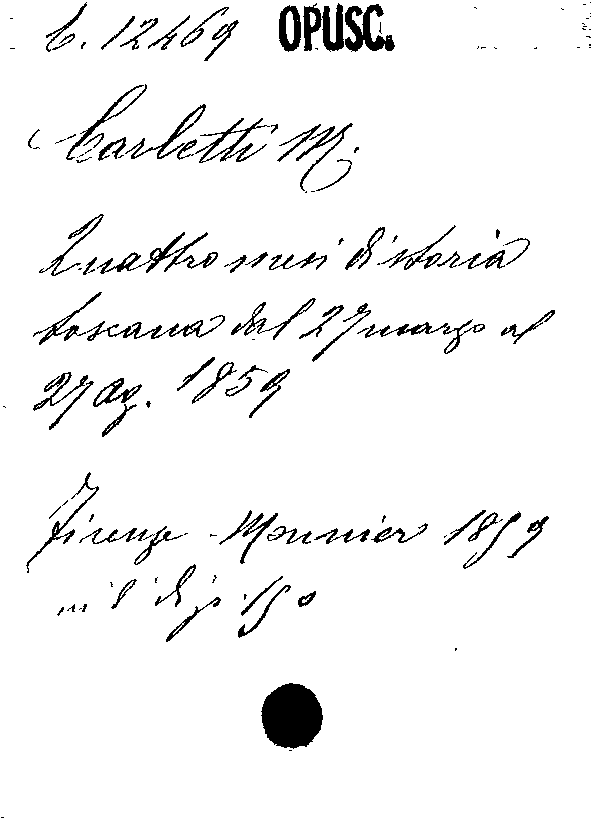 C. 12469 OPUSC.
Carletti M.
Quattro mesi di storia
toscana dal 27 marzo al
27 ag. 1859
Firenze - Monnier 1859
in 8 di p. 150